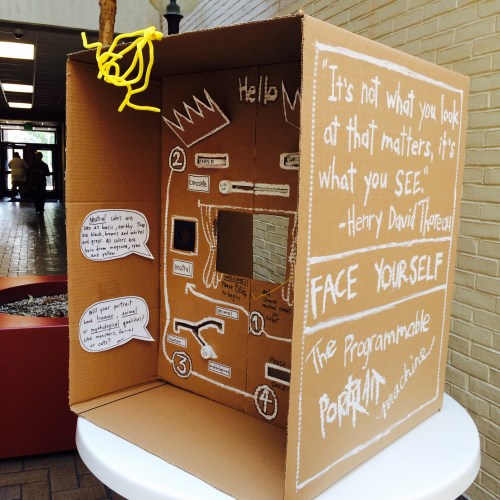 Hello
"It's not what you look
at that matters, it's
what you SEE."
-Henry David Thoreau
FACE YOURSELF
The Programmable
PORTRAIT
machine
2
Complete
Neutral colors are
as basic, earthy. They
are black, browns and whites
and greys. All colors are
born from magenta, cyan
and yellow.
neutral
1
Will your portrait
have human, animal
or mythological qualities?
Like monsters, fairies
or cats?
3
4